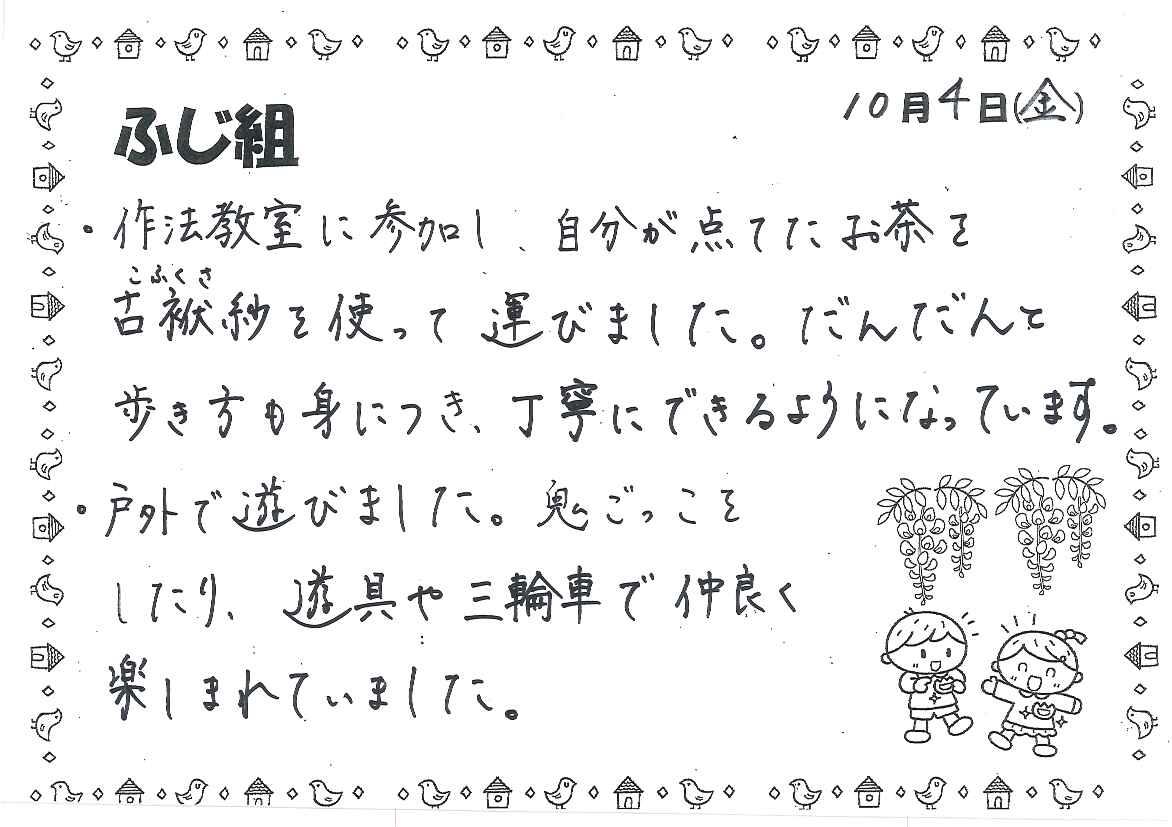 10月4日(金)
ふじ組
・作法教室に参加し、自分が点てたお茶を
こふくさ
古袱紗を使って運びました。だんだんと
歩き方も身につき、丁寧にできるようになっています。
・戸外で遊びました。鬼ごっこを
したり、遊具や三輪車で仲良く
楽しまれていました。